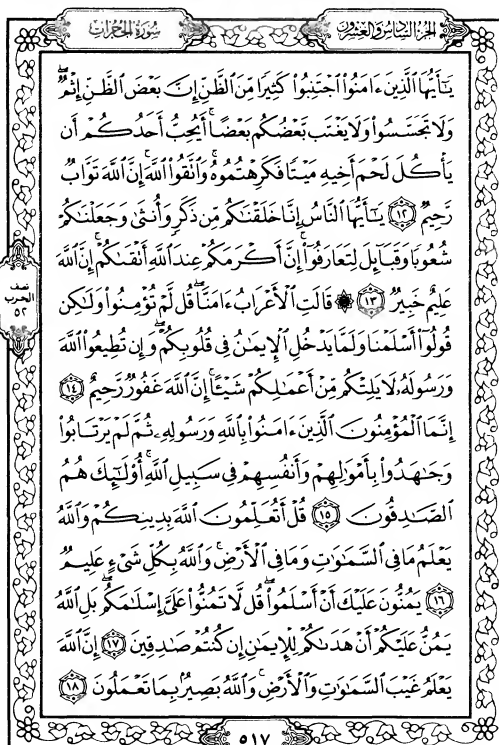 سُورَةُ الحُجُرَات
الجزء السادس والعشرون
يَٰٓأَيُّهَا ٱلَّذِينَ ءَامَنُوا۟ ٱجْتَنِبُوا۟ كَثِيرًا مِّنَ ٱلظَّنِّ إِنَّ بَعْضَ ٱلظَّنِّ إِثْمٌ ۖ
وَلَا تَجَسَّسُوا۟ وَلَا يَغْتَب بَّعْضُكُم بَعْضًا ۚ أَيُحِبُّ أَحَدُكُمْ أَن
يَأْكُلَ لَحْمَ أَخِيهِ مَيْتًا فَكَرِهْتُمُوهُ ۚ وَٱتَّقُوا۟ ٱللَّهَ ۚ إِنَّ ٱللَّهَ تَوَّابٌ
رَّحِيمٌ ١٢ يَٰٓأَيُّهَا ٱلنَّاسُ إِنَّا خَلَقْنَٰكُم مِّن ذَكَرٍ وَأُنثَىٰ وَجَعَلْنَٰكُمْ
شُعُوبًا وَقَبَآئِلَ لِتَعَارَفُوٓا۟ ۚ إِنَّ أَكْرَمَكُمْ عِندَ ٱللَّهِ أَتْقَىٰكُمْ ۚ إِنَّ ٱللَّهَ
عَلِيمٌ خَبِيرٌ ١٣ ۞ قَالَتِ ٱلْأَعْرَابُ ءَامَنَّا ۖ قُل لَّمْ تُؤْمِنُوا۟ وَلَٰكِن
قُولُوٓا۟ أَسْلَمْنَا وَلَمَّا يَدْخُلِ ٱلْإِيمَٰنُ فِى قُلُوبِكُمْ ۖ وَإِن تُطِيعُوا۟ ٱللَّهَ
وَرَسُولَهُۥ لَا يَلِتْكُم مِّنْ أَعْمَٰلِكُمْ شَيْـًٔا ۚ إِنَّ ٱللَّهَ غَفُورٌ رَّحِيمٌ ١٤
إِنَّمَا ٱلْمُؤْمِنُونَ ٱلَّذِينَ ءَامَنُوا۟ بِٱللَّهِ وَرَسُولِهِۦ ثُمَّ لَمْ يَرْتَابُوا۟
وَجَٰهَدُوا۟ بِأَمْوَٰلِهِمْ وَأَنفُسِهِمْ فِى سَبِيلِ ٱللَّهِ ۚ أُو۟لَٰٓئِكَ هُمُ
ٱلصَّٰدِقُونَ ١٥ قُلْ أَتُعَلِّمُونَ ٱللَّهَ بِدِينِكُمْ وَٱللَّهُ
يَعْلَمُ مَا فِى ٱلسَّمَٰوَٰتِ وَمَا فِى ٱلْأَرْضِ ۚ وَٱللَّهُ بِكُلِّ شَىْءٍ عَلِيمٌ
١٦ يَمُنُّونَ عَلَيْكَ أَنْ أَسْلَمُوا۟ ۖ قُل لَّا تَمُنُّوا۟ عَلَىَّ إِسْلَٰمَكُم ۖ بَلِ ٱللَّهُ
يَمُنُّ عَلَيْكُمْ أَنْ هَدَىٰكُمْ لِلْإِيمَٰنِ إِن كُنتُمْ صَٰدِقِينَ ١٧ إِنَّ ٱللَّهَ
يَعْلَمُ غَيْبَ ٱلسَّمَٰوَٰتِ وَٱلْأَرْضِ ۚ وَٱللَّهُ بَصِيرٌۢ بِمَا تَعْمَلُونَ ١٨
نصف
الحزب
٥٢
٥١٧